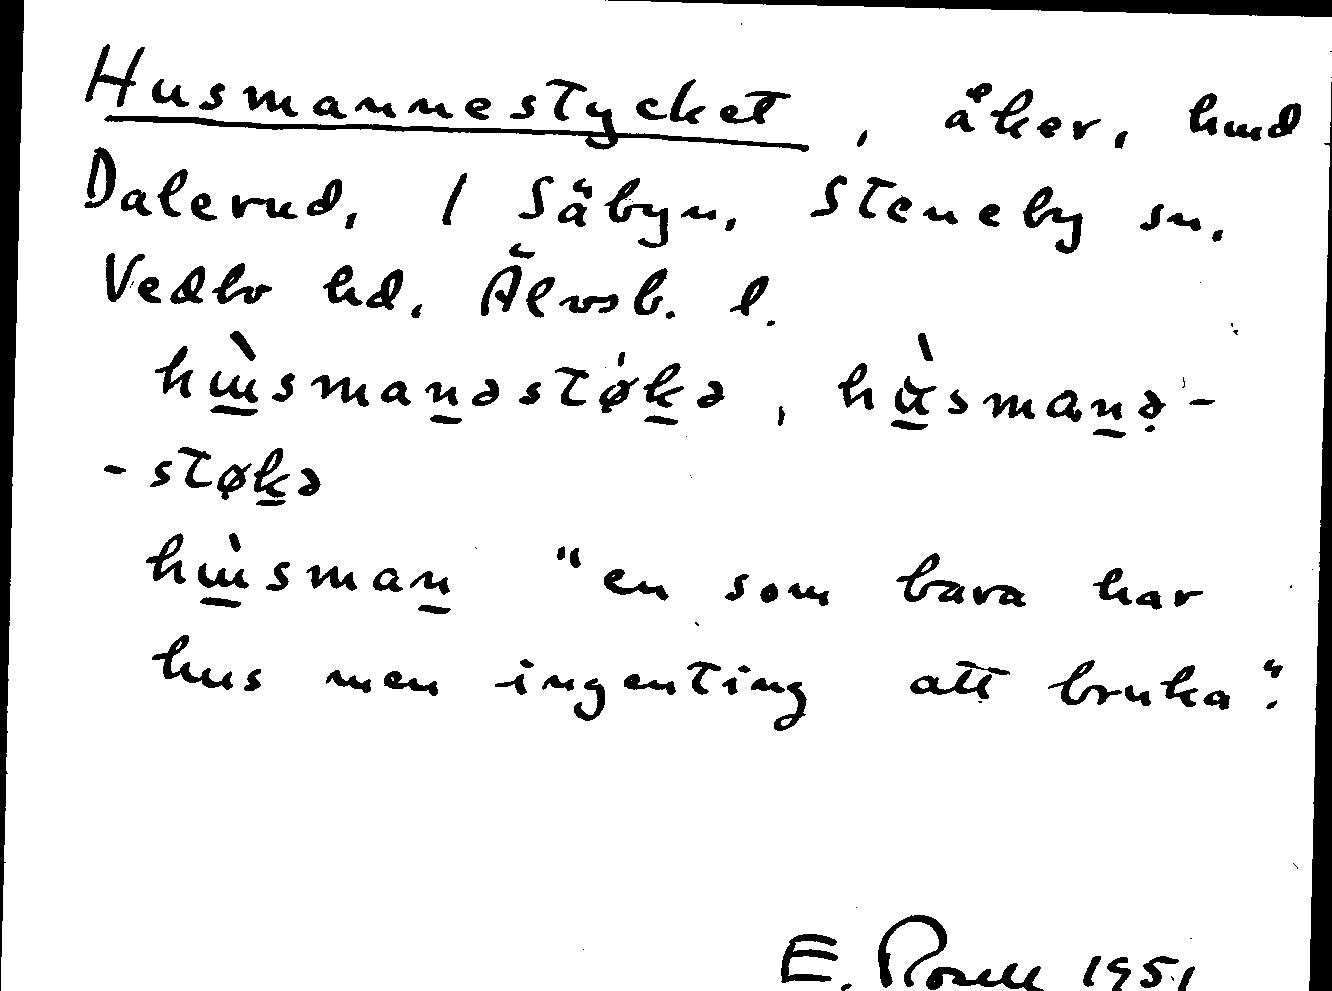 Husmannestycket, åker, hmd
Dalerud, 1 Säbyn, Steneby sn,
Vedbo hd, Älvsb. l.
hɯ̲̀sman̲əstǿk̲ə, hɯ̲̀sman̲ə-
-støk̲ə
hɯ̲̀sman̲ "en som bara har
hus men ingenting att bruka".
E. Rosell 1951